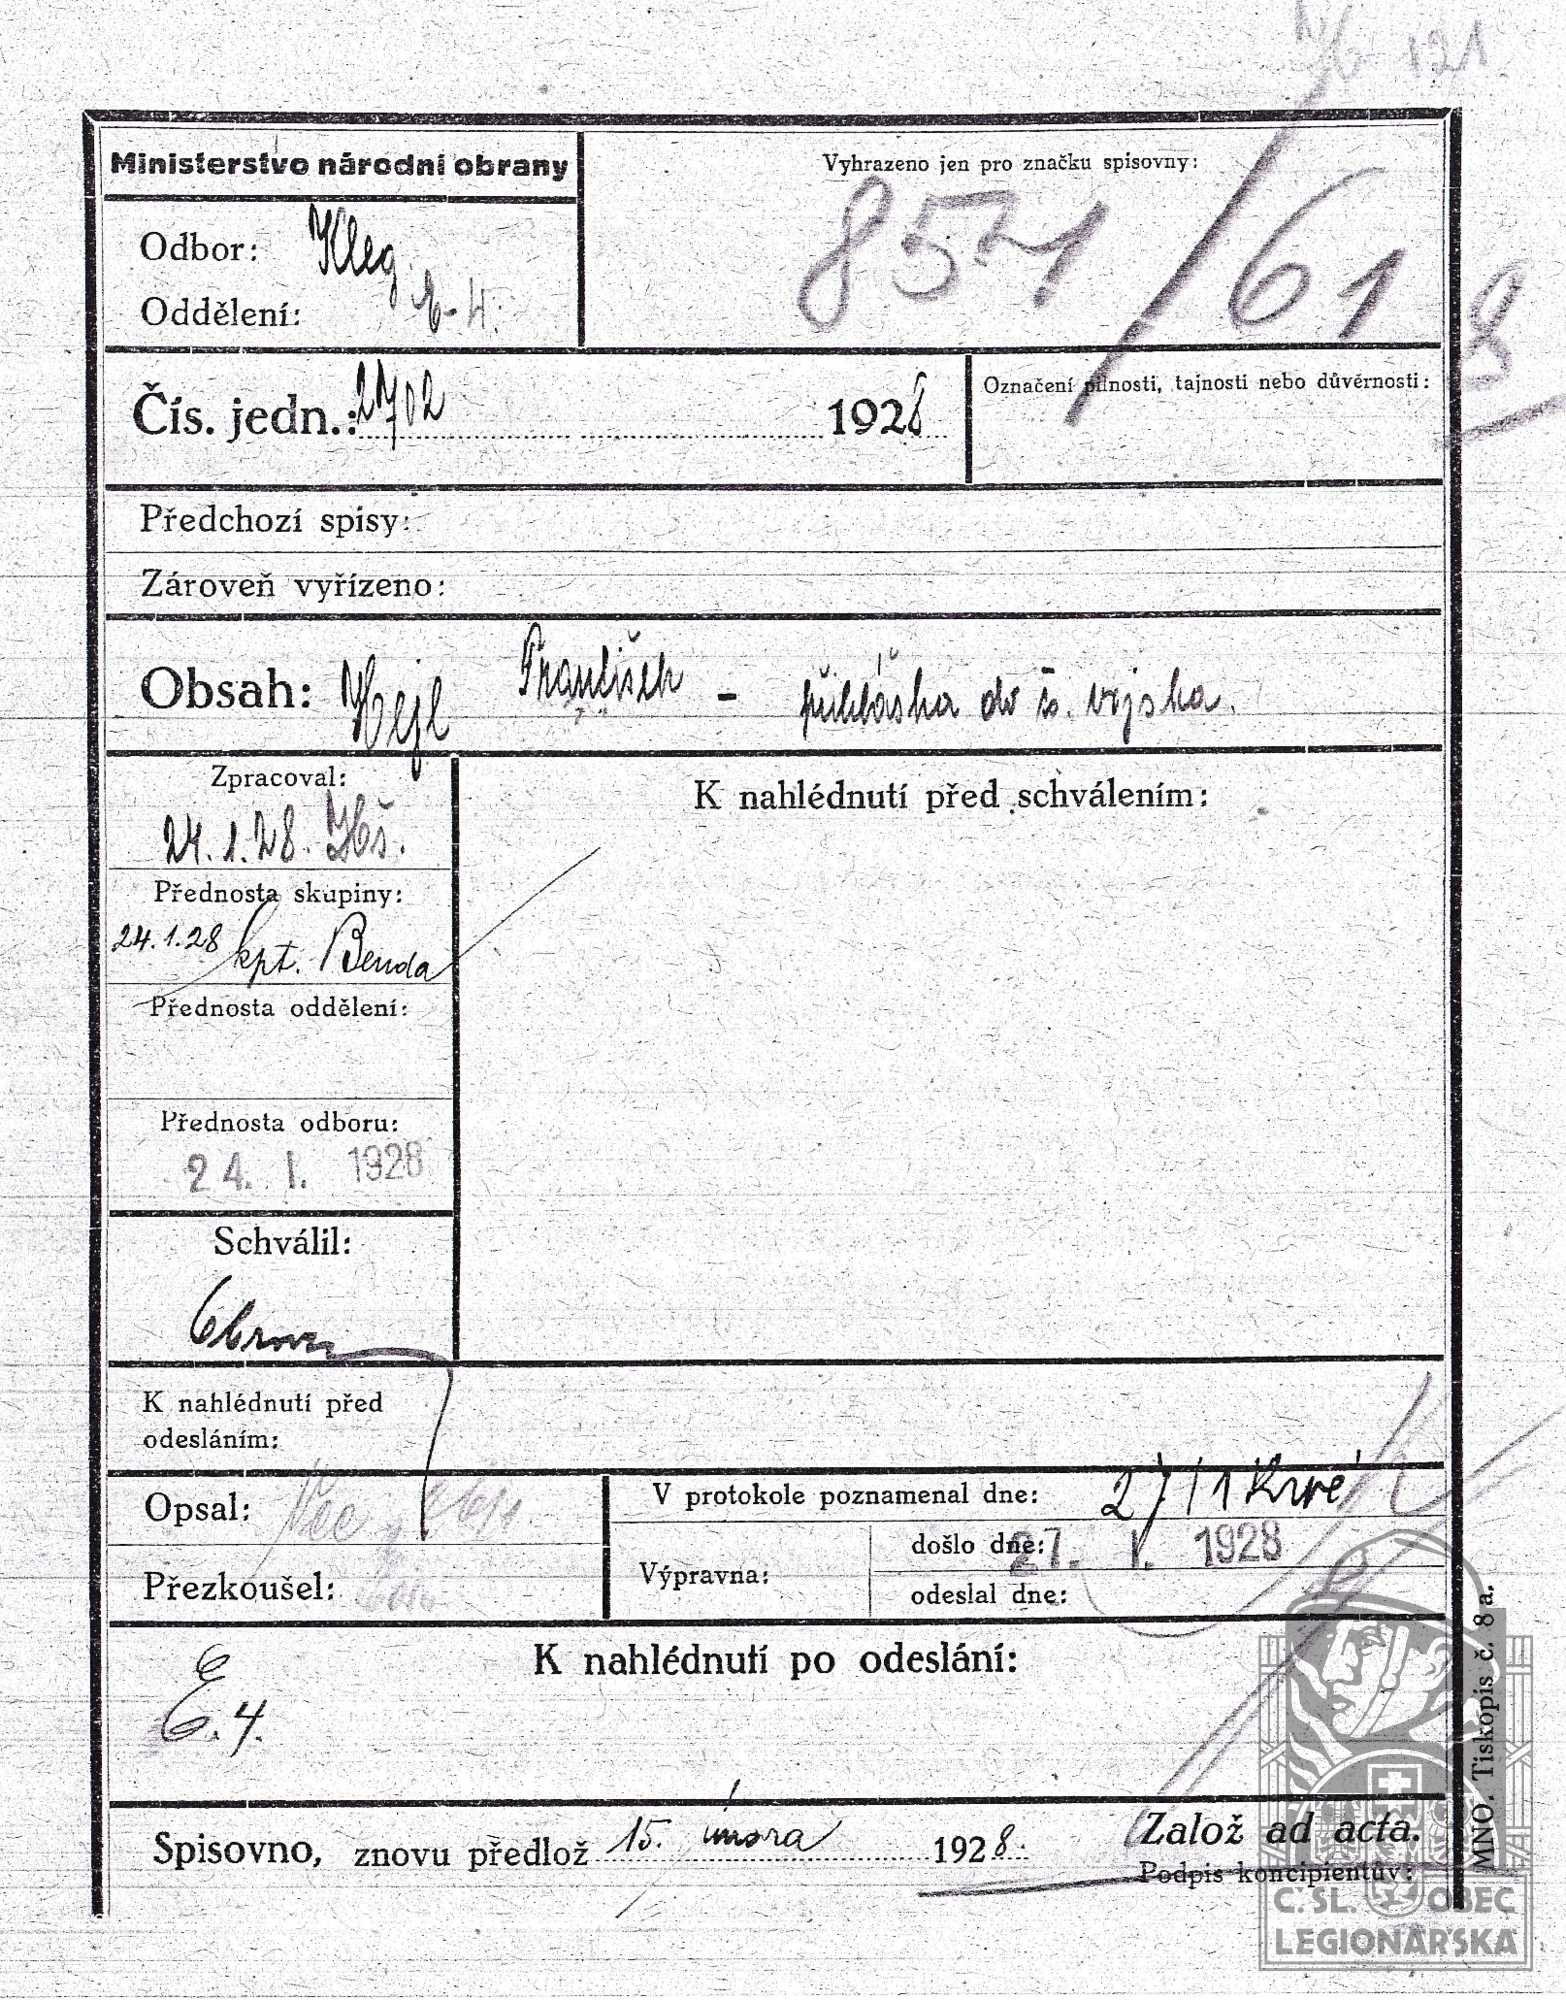 121.
Ministerstvo národní obrany
Vyhrazeno jen pro značku spisovny:
851/61
8
Odbor: Kleg.
Oddělení: E-4.
Čís. jedn.: 2702 1928
Označení pilnosti, tajnosti nebo důvěrnosti:
Předchozí spisy:
Zároveň vyřízeno:
Obsah: Hejl František - přihláška do čs. vojska.
Zpracoval:
24.1.28. Hš.
K nahlédnutí před schválením:
Přednosta skupiny:
24.1.28 kpt. Benda
Přednosta oddělení:
Přednosta odboru:
24. I. 1928
Schválil:
K nahlédnutí před
odesláním:
Opsal:
V protokole poznamenal dne: 27/1
Výpravna:
došlo dne: 27. I. 1928
Přezkoušel:
odeslal dne:
K nahlédnutí po odeslání:
E.4.
Spisovno, znovu předlož 15. února 1928.
Založ ad acta.
Podpis koncipientův:
MNO. Tiskopis č. 8 a.
Č.SL. OBEC
LEGIONÁŘSKÁ